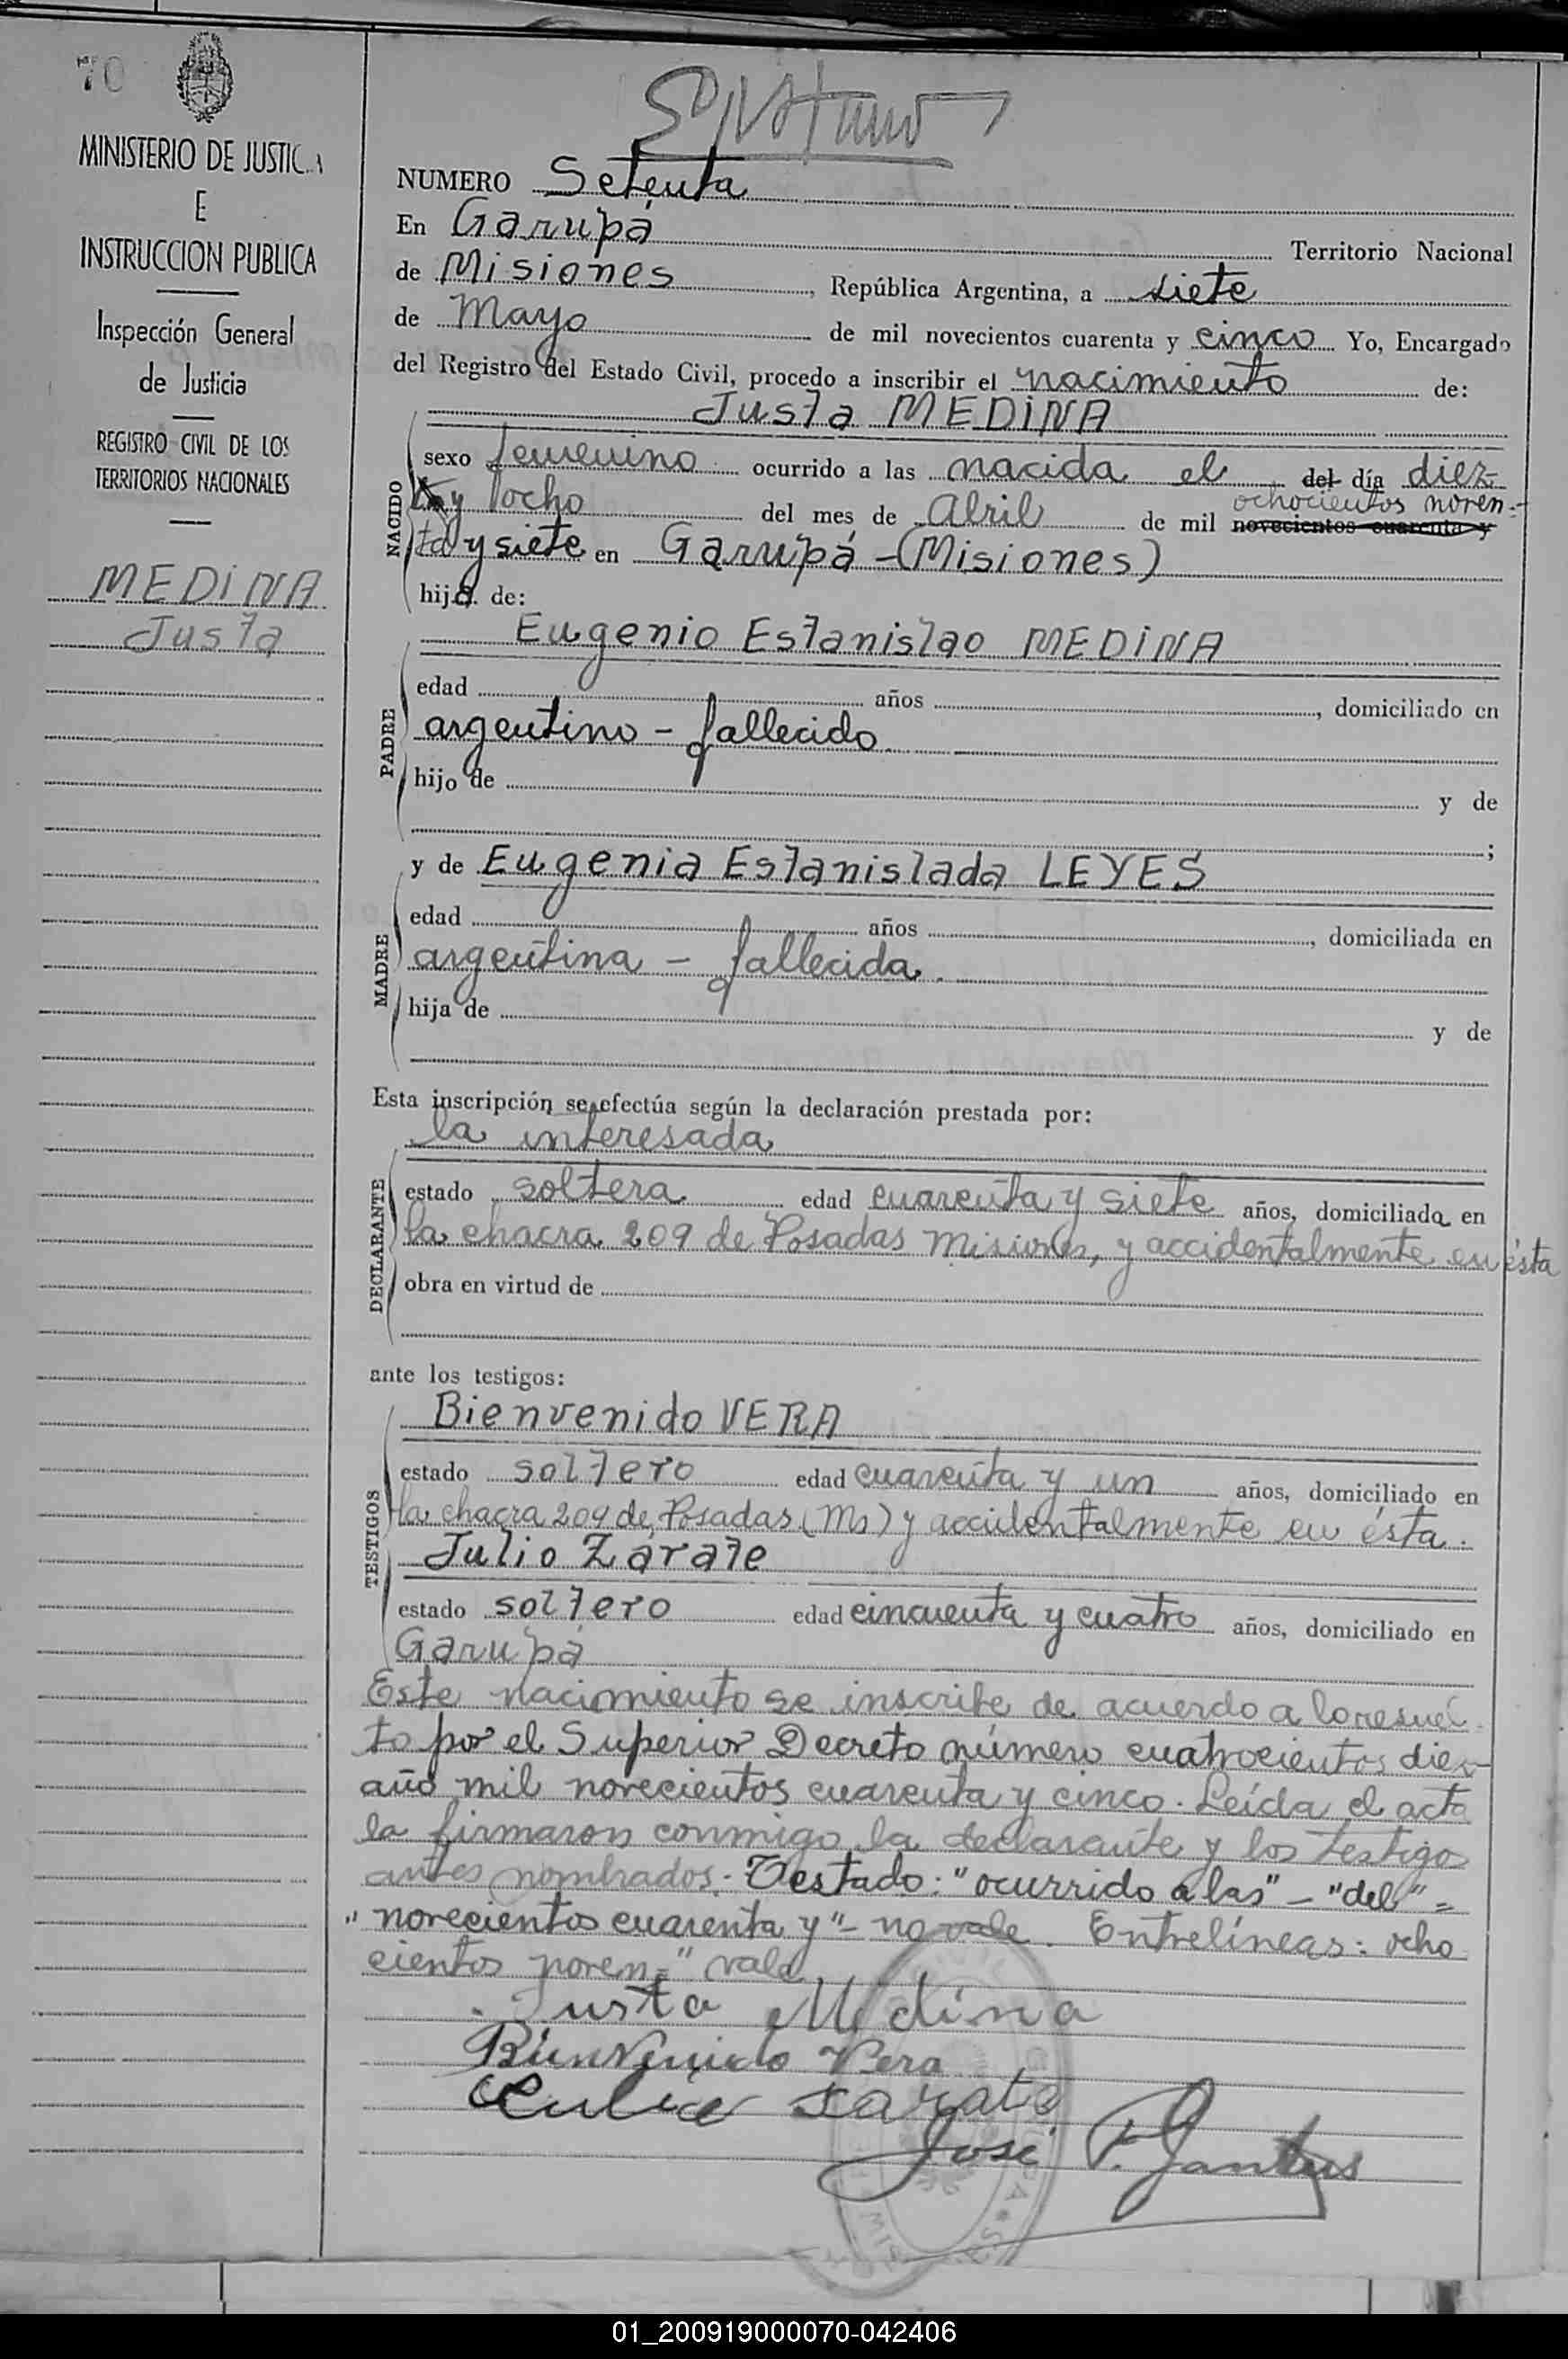 70
MINISTERIO DE JUSTICIA
E
INSTRUCCION PUBLICA
Inspección General
de Justicia
REGISTRO CIVIL DE LOS
TERRITORIOS NACIONALES
MEDINA
Justa
NUMERO Setenta
En Garupá Territorio Nacional
de Misiones, República Argentina, a siete
de Mayo de mil novecientos cuarenta y cinco Yo, Encargado
del Registro del Estado Civil, procedo a inscribir el nacimiento de:
Justa MEDINA
NACIDO
sexo femenino ocurrido a las nacida el del día diez
ochocientos noven=
y ocho del mes de Abril de mil novecientos cuarenta y
ta y siete en Garupá - (Misiones)
hija de:
Eugenio Estanislao MEDINA
PADRE
edad años , domiciliado en
argentino - fallecido
hijo de y de
;
y de Eugenia Estanislada LEYES
MADRE
edad años , domiciliada en
argentina - fallecida.
hija de y de
Esta inscripción se efectúa según la declaración prestada por:
la interesada
DECLARANTE
estado soltera edad cuarenta y siete años, domiciliada en
la chacra 209 de Posadas Misiones, y accidentalmente en ésta
obra en virtud de
ante los testigos:
Bienvenido VERA
TESTIGOS
estado soltero edad cuarenta y un años, domiciliado en
la chacra 209 de Posadas (Ms) y accidentalmente en ésta.
Julio Zárate
estado soltero edad cincuenta y cuatro años, domiciliado en
Garupá
Este nacimiento se inscribe de acuerdo a lo resuel
to por el Superior Decreto número cuatrocientos diez
año mil novecientos cuarenta y cinco. Leída el acta
la firmaron conmigo la declarante y los testigos
antes nombrados. Testado: "ocurrido a las" - "del" =
"novecientos cuarenta y" - no vale. Entrelíneas: ocho
cientos noven=" vale.
Justa Medina
Bienvenido Vera
Julio Sarate
José F.
01_200919000070-042406